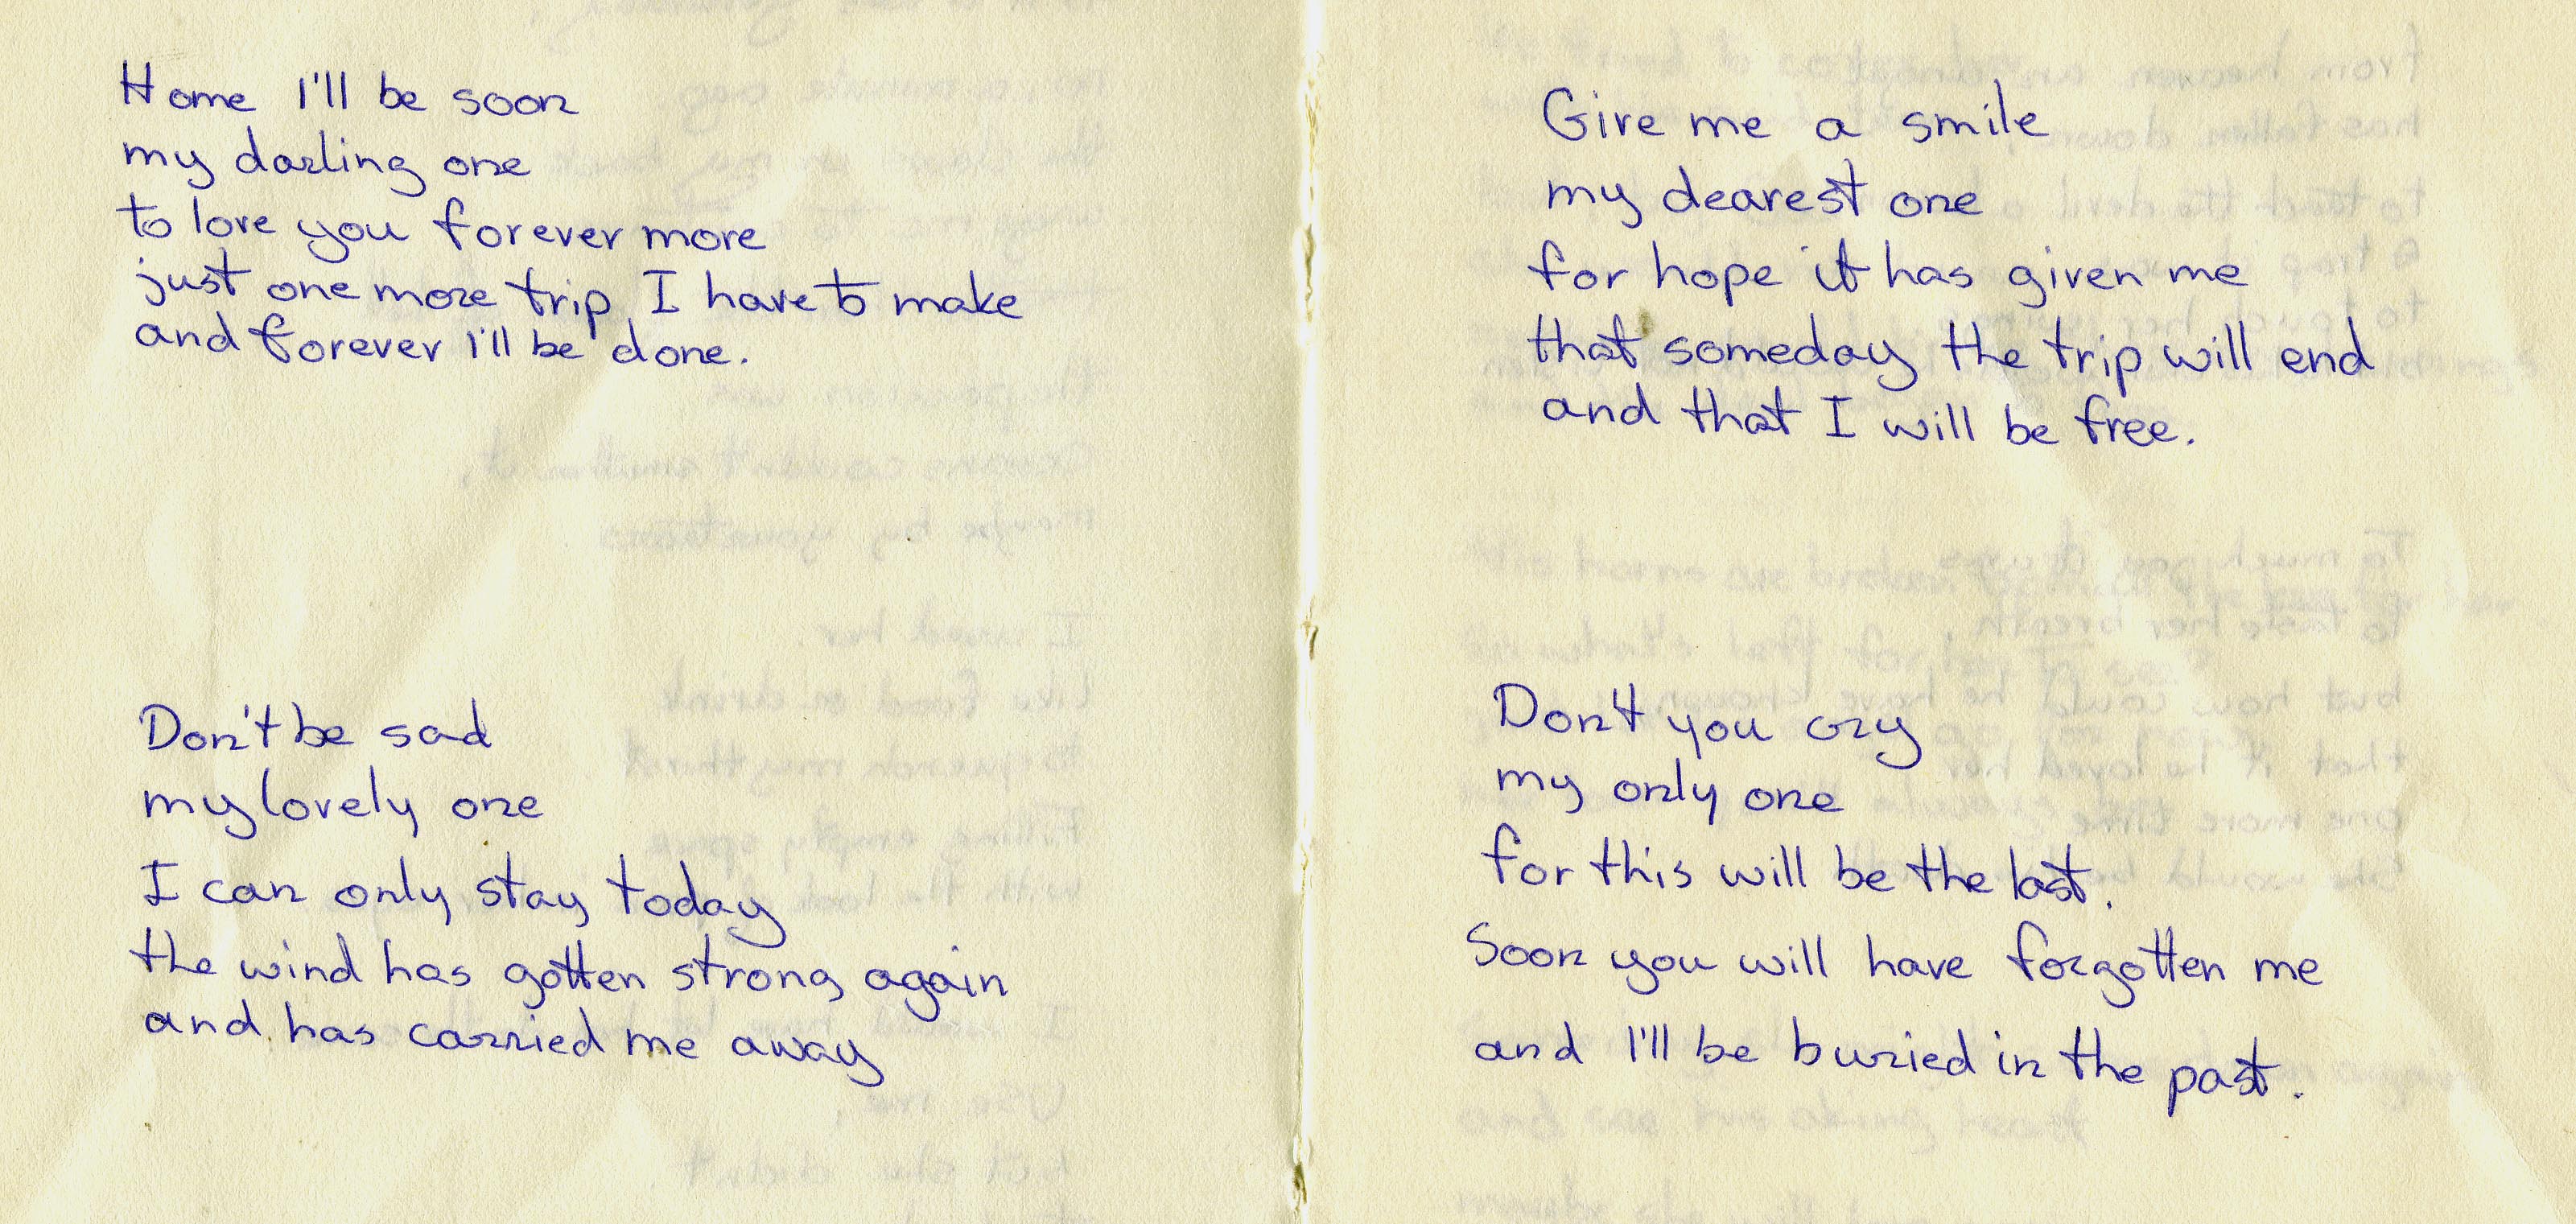 Home I'll be soon
my darling one
to love you forever more
just one more trip I have to make
and forever I'll be done.
Don't be sad
my lovely one
I can only stay today
the wind has gotten strong again
and has carried me away
Give me a smile
my dearest one
for hope it has given me
that someday the trip will end
and that I will be free.
Don't you cry
my only one
for this will be the last.
Soon you will have forgotten me
and I'll be buried in the past.